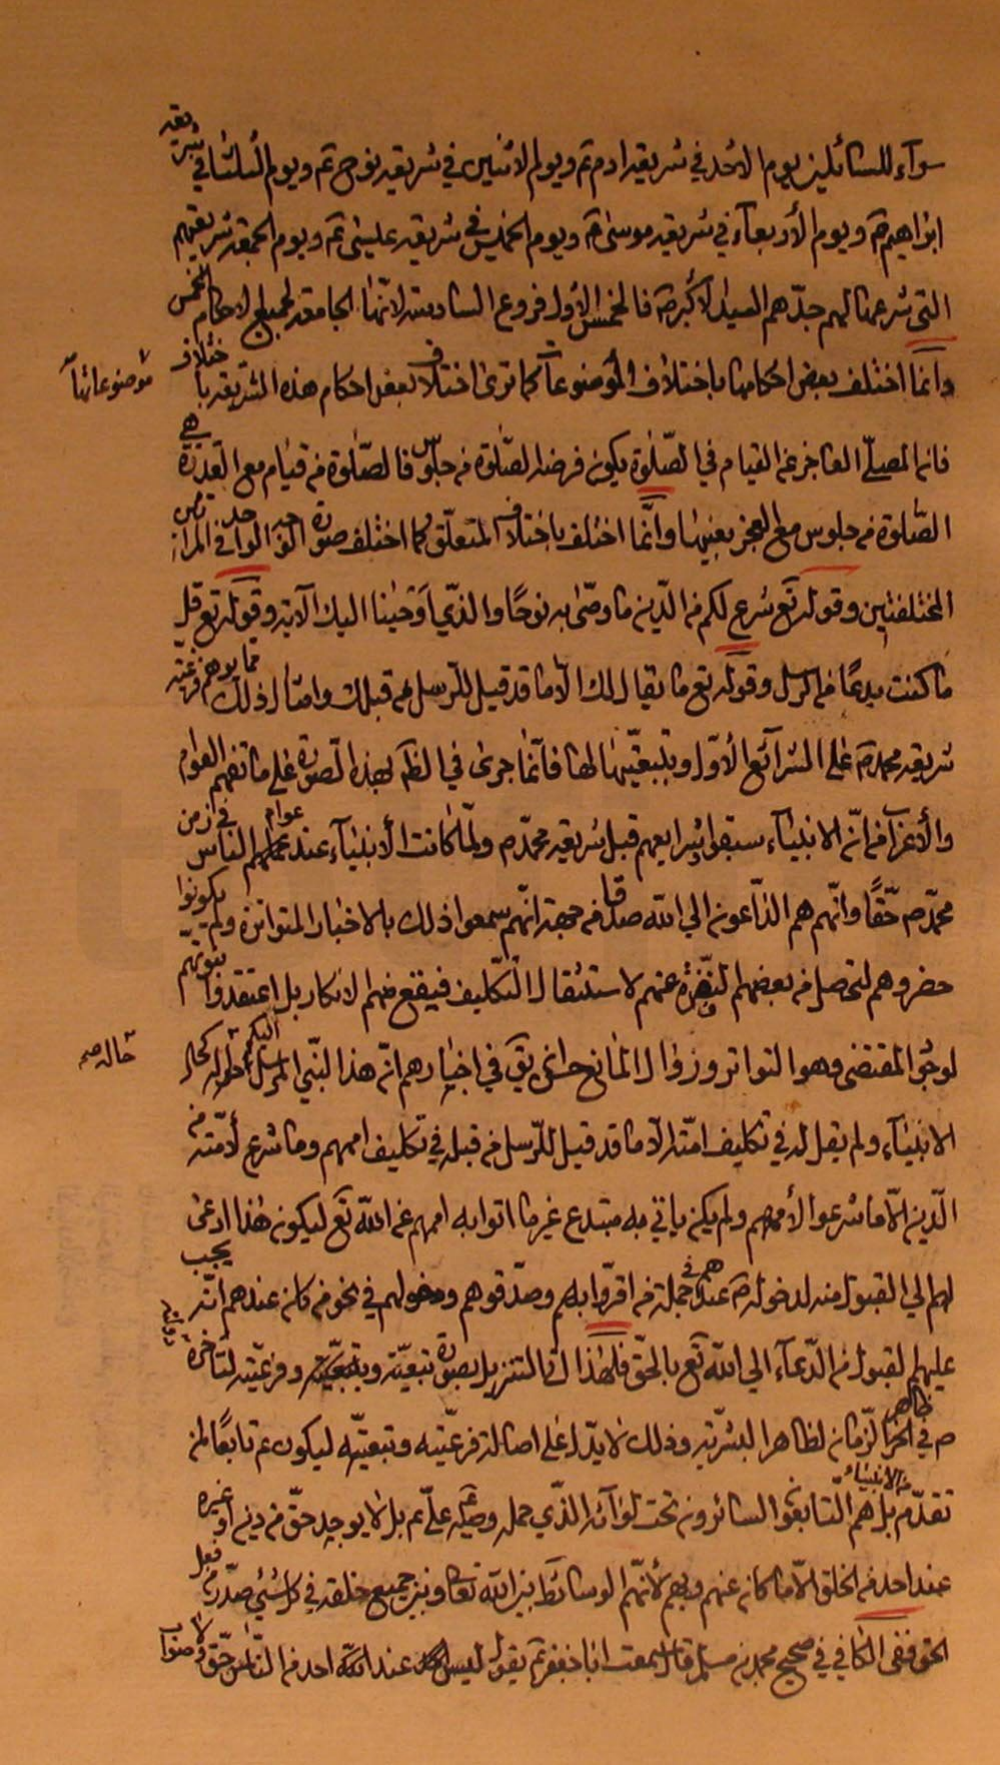 سوآء للسائلين يوم الاحد في شريعة ادم ع ويوم الاثنين في شريعة نوح ع ويوم الثلثا في شريعة
ابراهيم ع ويوم الأربعآء في شريعة موسى ع ويوم الخميس في شريعة عيسى ع ويوم الجمعة شريعتهم
التي شرعها لهم جدّهم السيد الأكبر ص فالخمس الأول فروع السادسة لانّها الجامعة لجميع احكام الخمس
وانما اختلف بعض احكامها باختلاف الموضوعآت كما ترى اختلاف بعض احكام هذه الشريعة باختلاف
موضوعاتها
فان المصلّي العاجز عن القيام في الصّلوة يكون فرضه الصّلوة من جلوس فالصّلوة من قيام مع القدرة هي
الصّلوة من جلوس مع العجز بعينها وانّما اختلف باختلاف المتعلّق كما اختلف صورة الوجه الواحد في المراتين
المختلفتين وقوله تع شرع لكم من الدّين ما وصّى به نوحًا والذّي اَوْحَيْنا اليك الآية وقوله تع قل
ما كنت بدعًا من الرسل وقوله تع ما يقال لك الّا ما قد قيل للرّسل من قبلك وامثال ذلك مما يوهم فرعيّة
شريعة محمد ص على الشرآئع الأوّل وتبعيّتها لها فانّما جرى في الظّ بهذه الصّورة على ما تفهم العوام
والأعراب من انّ الانبيآء سبقوا بشرايعهم قبل شريعة محمّد ص ولمّا كانت الأنبيآء عند عوام الناس في زمن
محمّد ص حقًّا وانّهم هم الدّاعون الى الله صدقا من جهة انّهم سمعوا ذلك بالاخبار المتواترة ولم يكونوا
حضروهم لتحصل من بعضهم النّفرة عنهم لاستثقال التّكليف فيقع منهم الانكار بل اعتقدوا نبوّتهم
لوجود المقتضى وهو التواتر وزوال المانع حسن في اخبارهم انّ هذا النّبي المرسل اليكم حاله كحال
حاله صح
الانبيآء ولم يقل له في تكليف امّته الّا ما قد قيل للرّسل من قبله في تكليف اممهم وما شرع لأمّته من
الدّين الّا ما شرعوا لأممهم ولم يكن ياتي به مبتدع غير ما اتوا به اممهم عن الله تع ليكون هذا ادعى
لهم الى القبول منه لدخوله ص عندهم في جملة من اقرّوا بهم وصدّقوهم ودخولهم في نحو من كان عندهم انّه يجب
عليهم القبول من الدّعآء الى الله تع بالحقّ فلهذا اتى التنزيل بصورة تبعيّة وفرعيّته لتاخّره
ص في اخر الزّمان ظاهر لظاهر البشريّة وذلك لا يدّل على اصالة فرعيّته وتبعيّته ليكون ع تابعًا لمن
تقدّم من الانبياء بل هم التّابعوا السائرون تحت لوآئه الذّي حمله وصيّه علّي ع بل لا يوجد حقّ من دين او غيره
عند احد من الخلق الّا ما كان عنهم وبهم لأنّهم الوسائط بين الله تعا وبين جميع خلقه في كل شئ صدر من فعل
الحق ففى الكافي في صحيح محمد بن مسلم قال سمعت ابا جعفر ع يقول ليس عند احد من النّاس حقّ ولا صواب